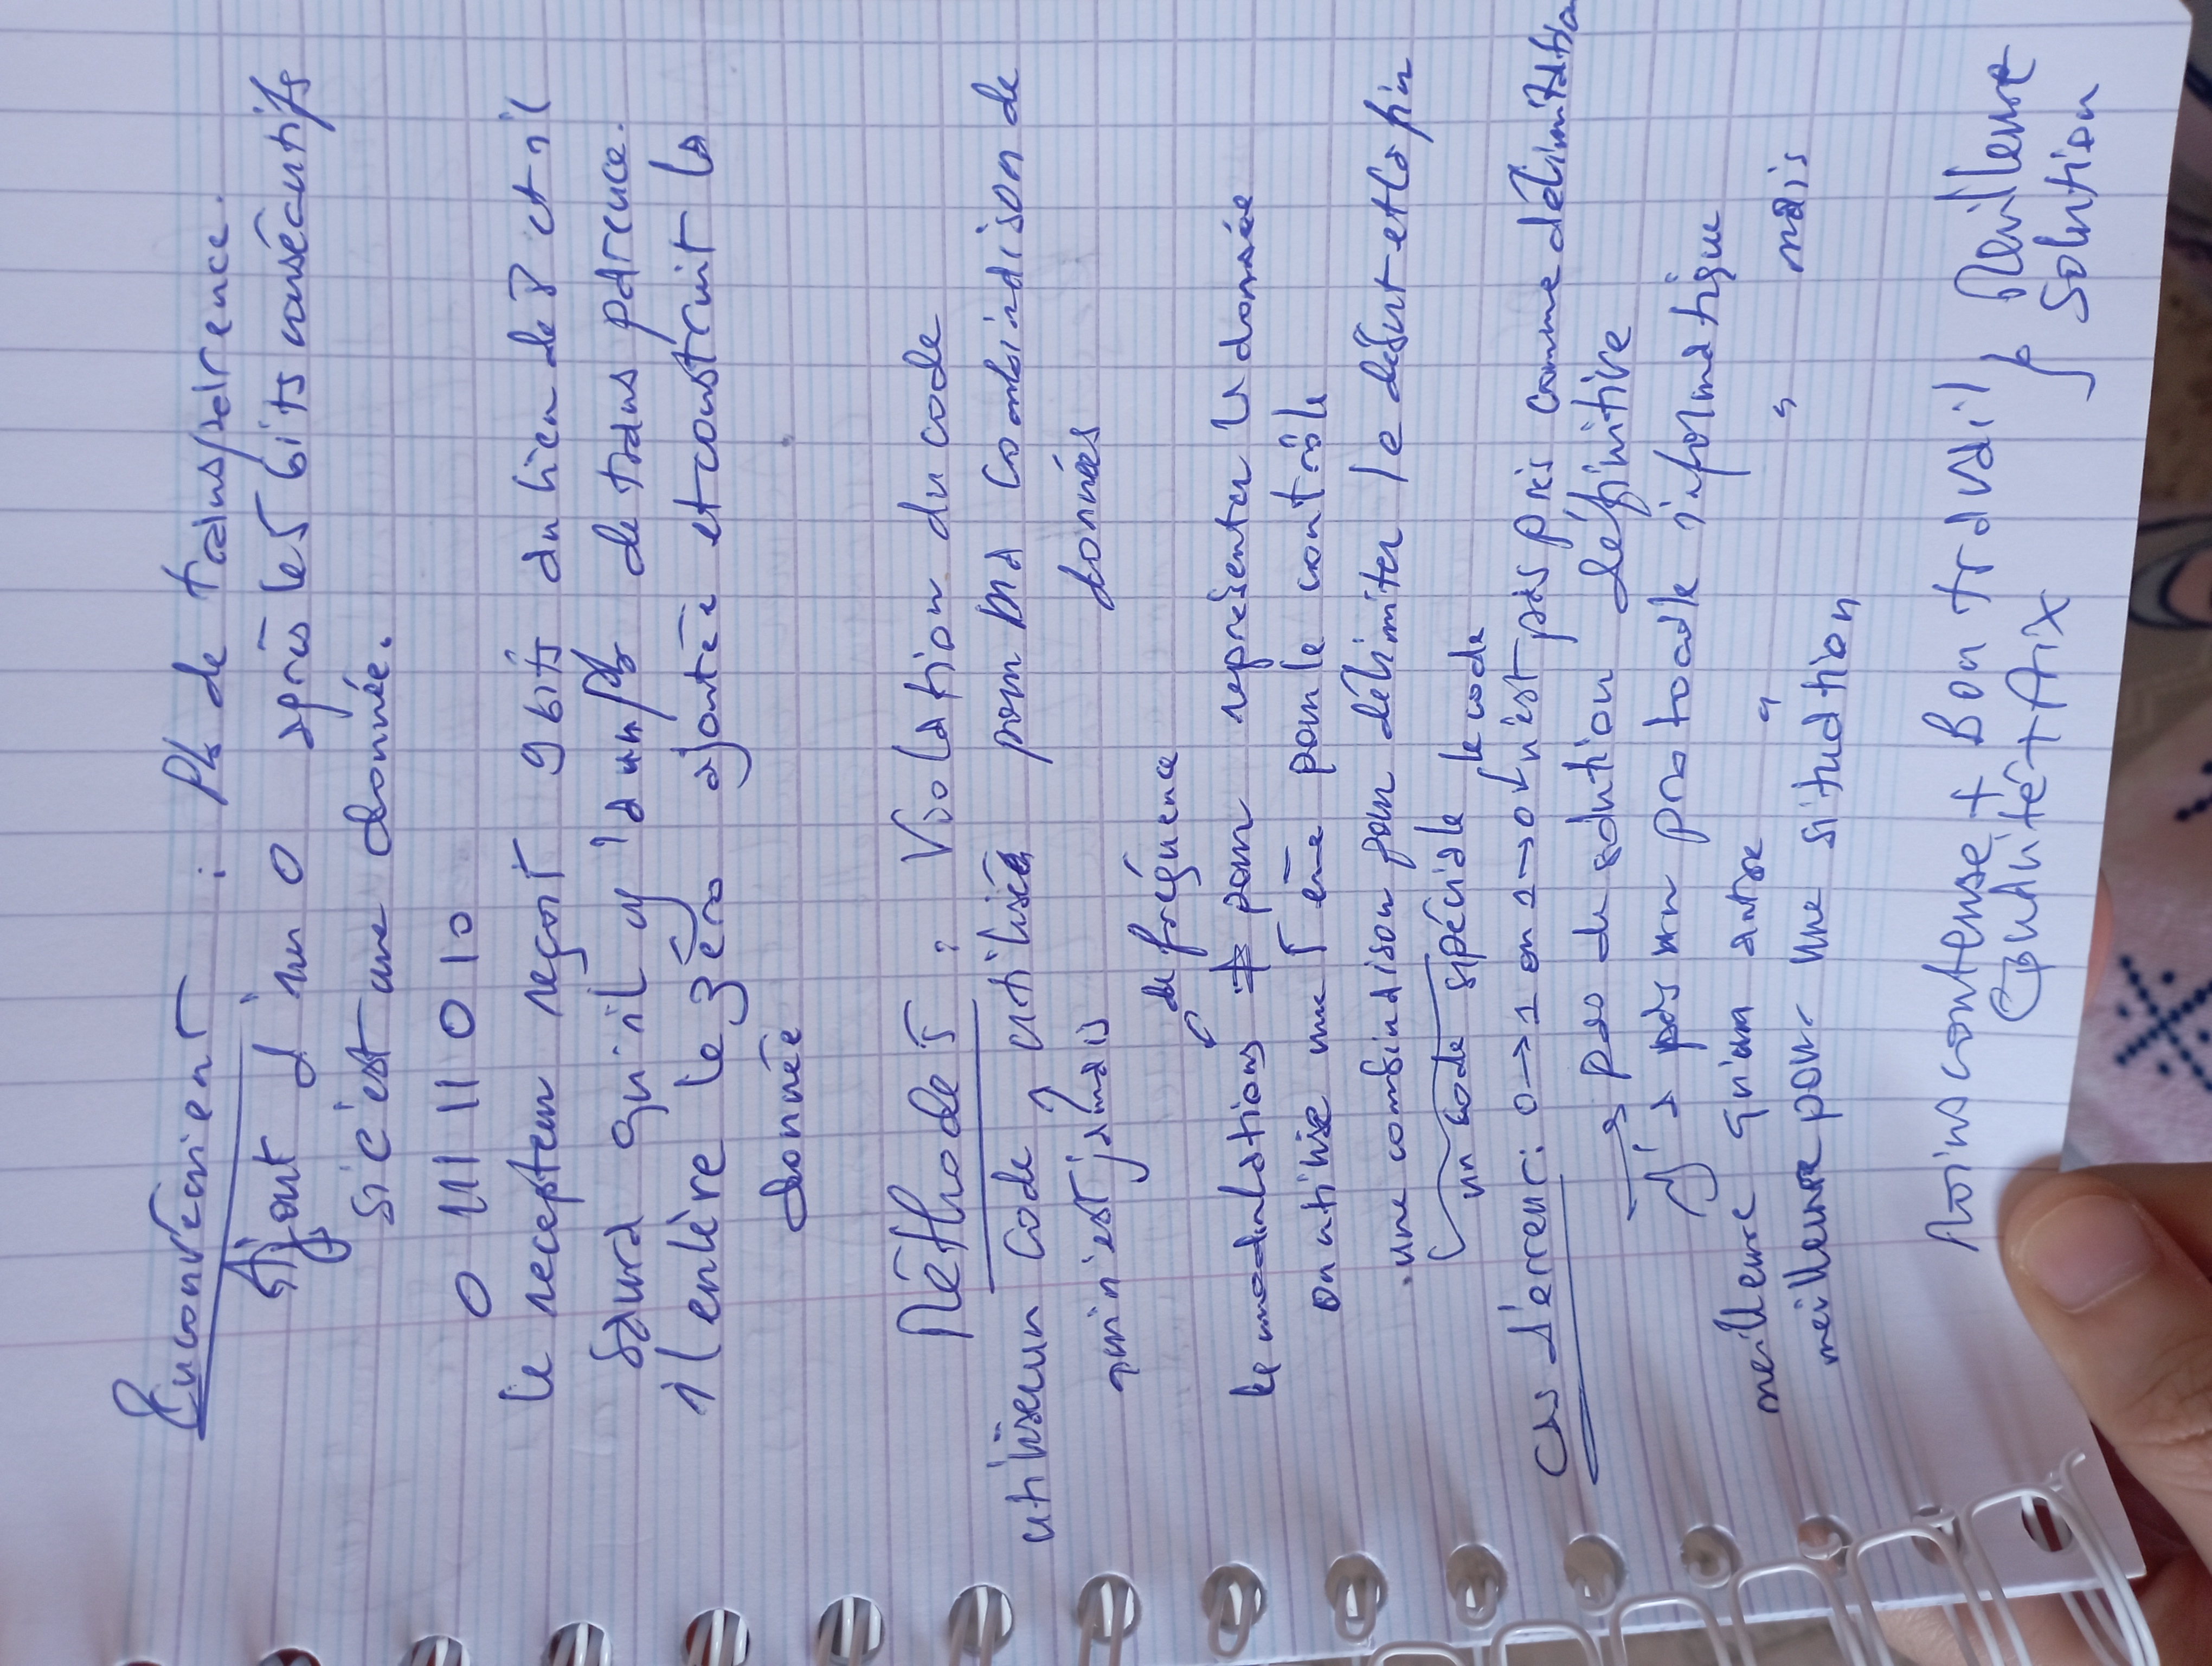 Inconvénient : Pb de transparence.
Ajout d'un 0 après les 5 bits consécutifs
si c'est une donnée.
0 111 11 0 10
le recepteur reçoit 9 bits au lieu de 8 et il
saura qu'il y'a un Pb de transparence.
il enlève le zéro ajoutée et construit la
donnée
Méthode 5 : Violation du code
utiliser un code utilisée pour ma combinaison de
qui n'est jamais données
de fréquence
modulations ≠ pour représenter la donnée
on utilise une 5 ème pour le contrôle
une combinaison pour délimiter le début et la fin
un code spéciale le code
Cas d'erreur : 0 → 1 ou 1 → 0 n'est pas pris comme délimitation
→ pas de solution définitive
y'a pas un protocole informatique
meilleure qu'un autre " " mais
meilleure pour une situation
Moins couteuse + Bon travail } Meilleure
Qualité + Prix Solution